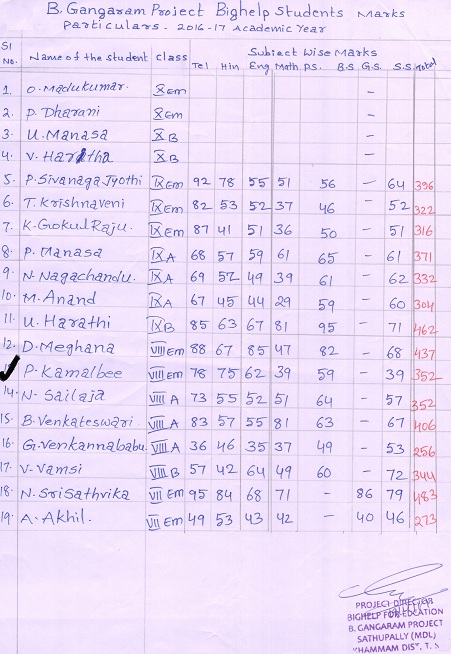 B. Gangaram Project Bighelp Students Marks
Particulars. 2016-17 Academic Year
Sl No. Name of the student Class Subject Wise Marks
Tel Hin Eng Math P.S. B.S G.S. S.S Total
1. O. Madukumar. X Em -
2. P. Dharani X Em -
3. U. Manasa X B -
4. V. Haritha X B -
5. P. Sivanaga Jyothi IX Em 92 78 55 51 56 - 64 396
6. T. Krishnaveni IX Em 82 53 52 37 46 - 52 322
7. K. Gokul Raju. IX Em 87 41 51 36 50 - 51 316
8. P. Manasa IX A 68 57 59 61 65 - 61 371
9. N. Nagachandu. IX A 69 52 49 39 61 - 62 332
10. M. Anand IX A 67 45 44 29 59 - 60 304
11. U. Harathi IX B 85 63 67 81 95 - 71 462
12. D. Meghana VIII Em 88 67 85 47 82 - 68 437
P. Kamalbee VIII Em 78 75 62 39 59 - 39 352
14. N. Sailaja VIII A 73 55 52 51 64 - 57 352
15. B. Venkateswari. VIII A 83 57 55 81 63 - 67 406
16. G. Venkannababu. VIII A 36 46 35 37 49 - 53 256
17. V. Vamsi VIII B 57 42 64 49 60 - 72 344
18. N. Sri Sathvika VII Em 95 84 68 71 - 86 79 483
19. A. Akhil. VII Em 49 53 43 42 - 40 46 273
PROJECT DIRECTOR
BIGHELP FOR EDUCATION
B. GANGARAM PROJECT
SATHUPALLY (MDL)
KHAMMAM DIST, T. S